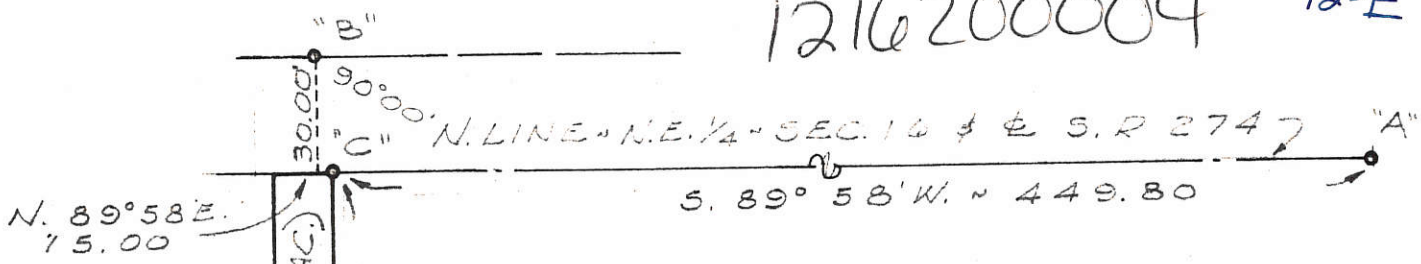 1216200004
12-E
"B"
30.00'
90°00'
"C"
N. LINE ~ N.E. 1/4 ~ SEC. 16 & ℄ S.R 274
"A"
S. 89° 58' W. ~ 449.80
N. 89°58'E.
15.00
AC.)